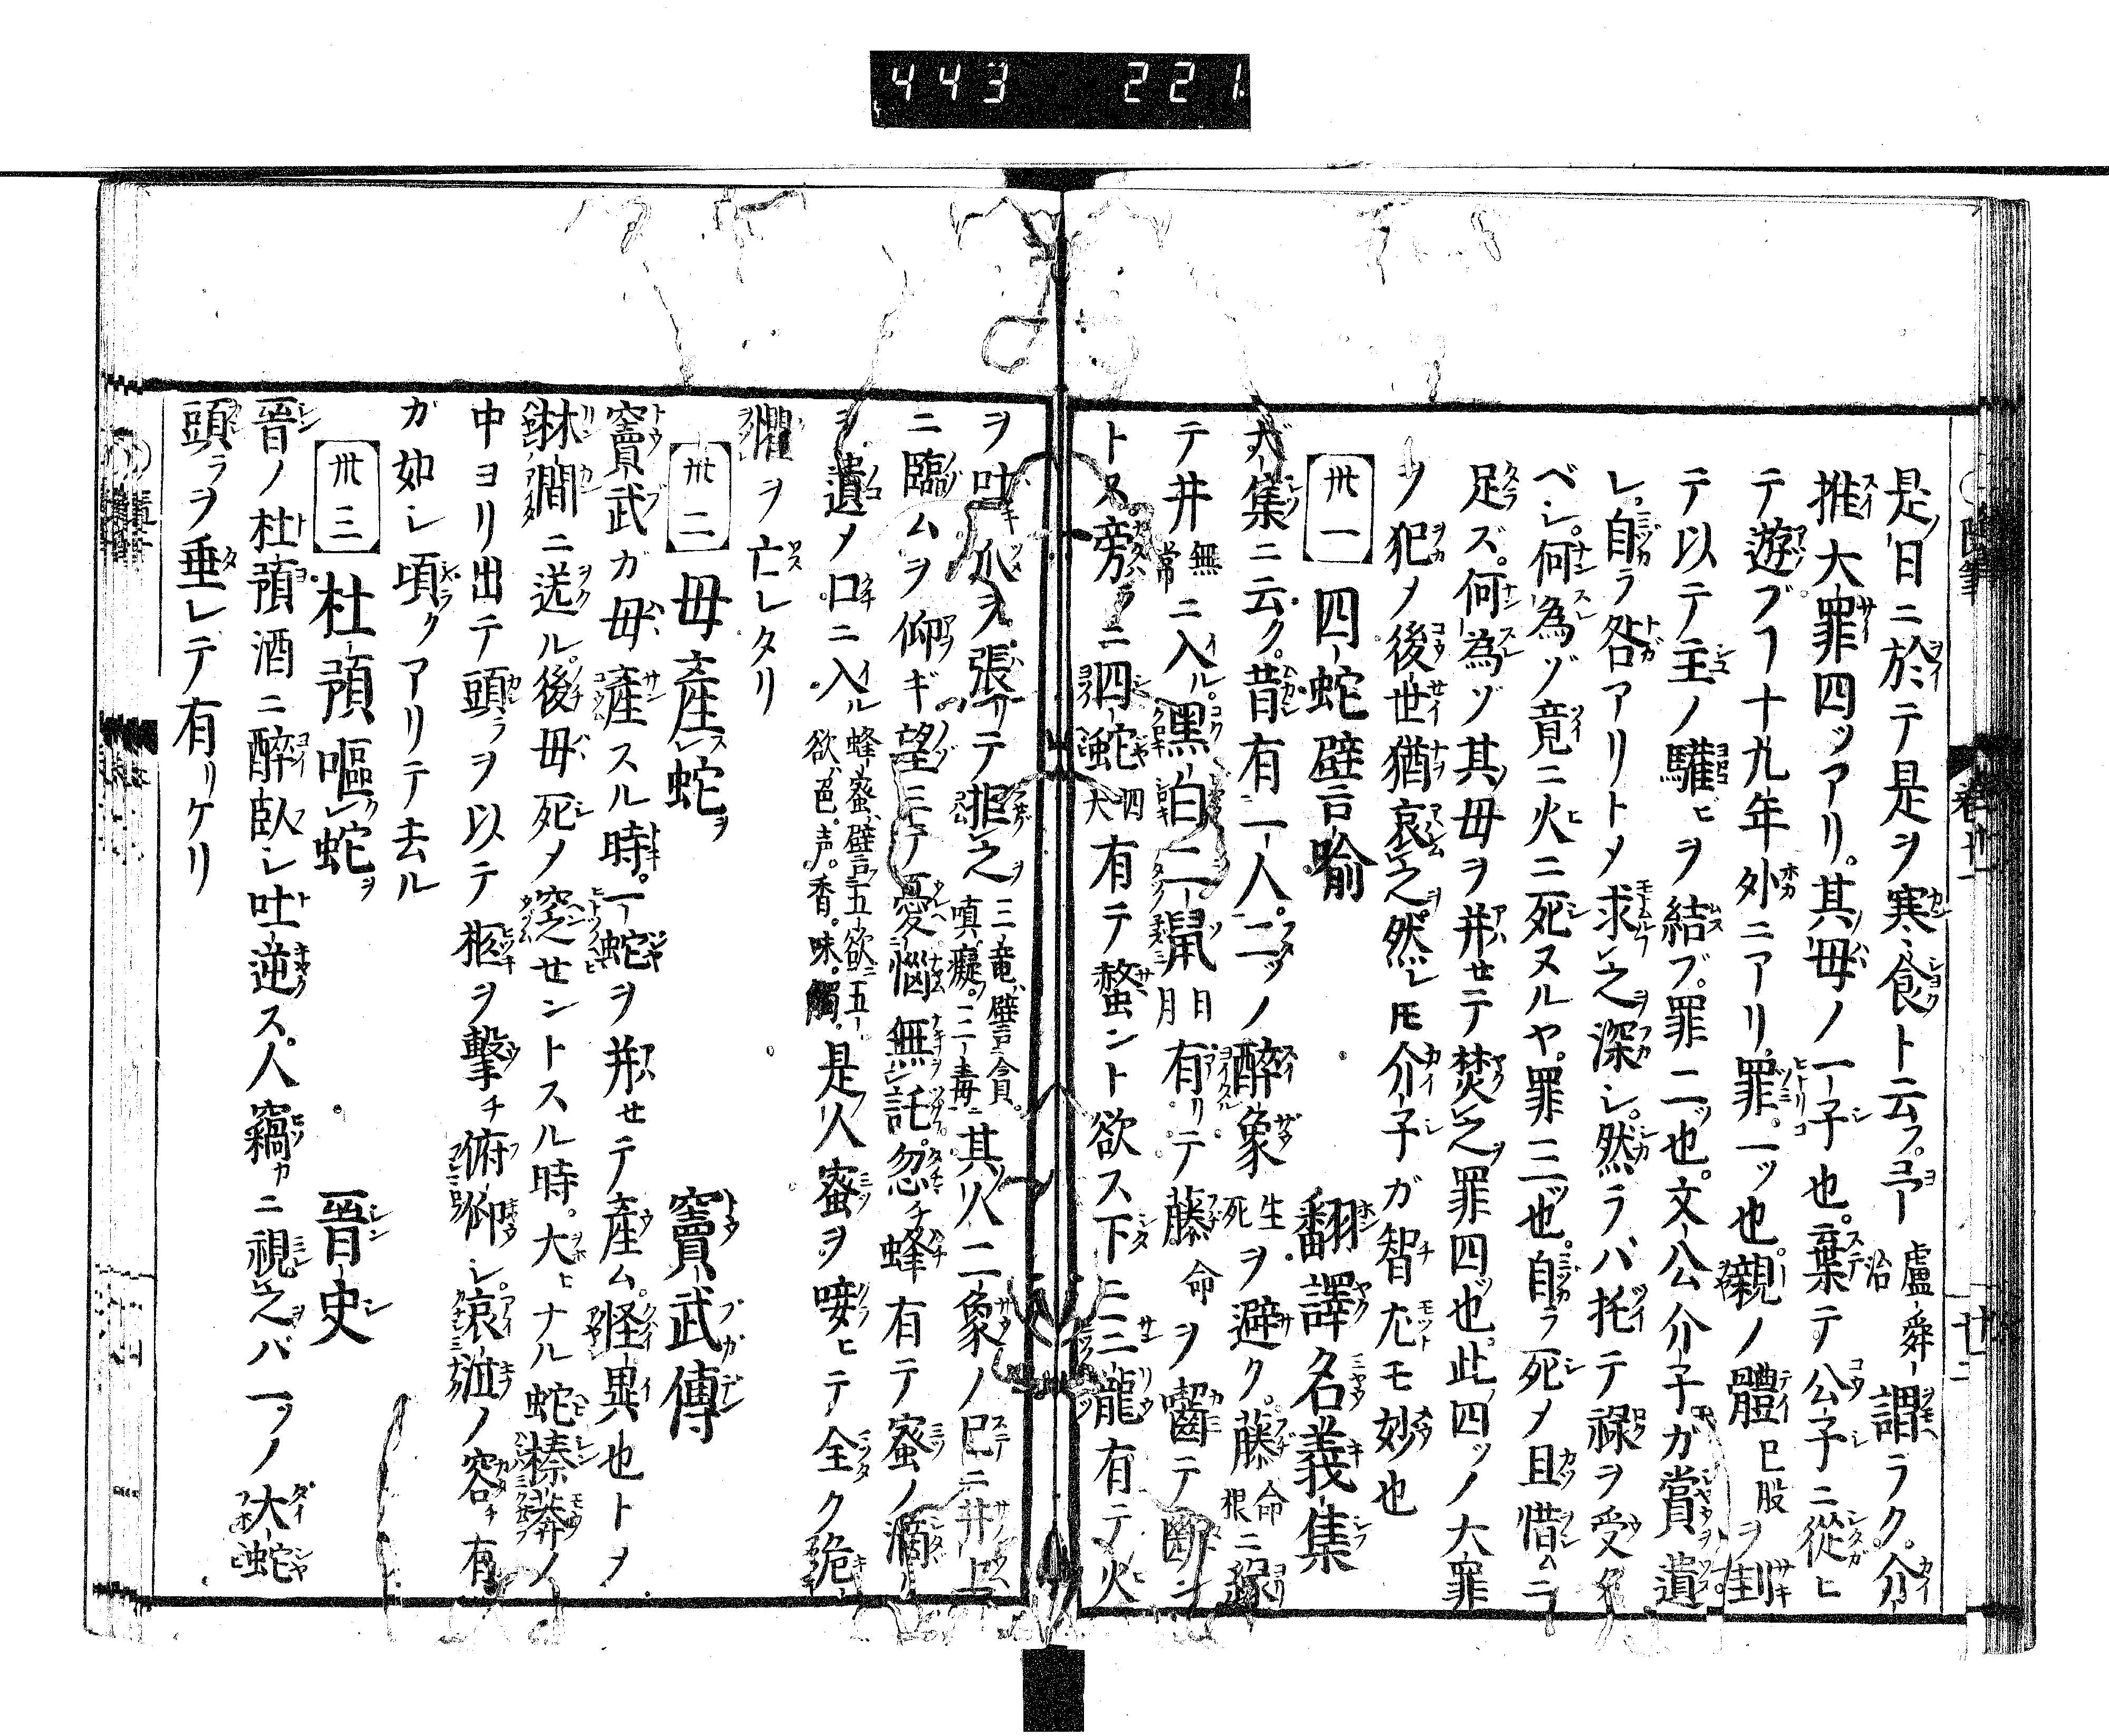 443 221
是日ニ於テ是ヲ寒食ト云フ予盧舜治謂ラク介
推大罪四ツアリ其母ノ一子也棄テ公子ニ從ヒ
テ遊ブヿ十九年外ニアリ罪一ッ也親ノ體已股ヲ刲
テ以テ主ノ驩ビヲ結ブ罪二ッ也文公介子ガ賞遺
レ自ラ咎アリトメ求之深シ然ラバ托テ禄ヲ受ク
ベシ何為ゾ竟ニ火ニ死ヌルヤ罪三ッ也自ラ死メ且惜ムニ
足ズ何為ゾ其母ヲ并セテ焚之罪四ッ也此四ッノ大罪
ヲ犯メ後世猶哀之然レ𪜈介子ガ智尤モ妙也
卅一 四蛇譬喩 翻譯名義集
大集ニ云ク昔有一人二ツノ醉象生死ヲ避ク藤命根ニ縁
テ井無常ニ入ル黒白二鼠日月有リテ藤命ヲ嚙テ断ン
トス旁ラニ四蛇四大有テ螫ント欲ス下ニ三龍有テ火
ヲ吐爪ヲ張リテ拒之三竜譬貪嗔癡三毒ニ其人二象ノ已ニ井上
ニ臨ムヲ仰ギ望ミテ憂惱無託忽チ蜂有テ蜜ノ滴リ
ヲ遺メ口ニ入ル蜂蜜譬五欲ニ五欲色声香味觸是人蜜ヲ唼ヒテ全ク危
懼ヲ亡レタリ
卅二 毋產蛇 竇武傳
竇武ガ毋產スル時一蛇ヲ并セテ產ム怪異也トメ
林澗ニ送ル後毋死メ窆セントスル時大ヒナル蛇榛莽ノ
中ヨリ出テ頭ラヲ以テ柩ヲ擊チ俯仰シ哀泣ノ容チ有
ガ如シ頃クアリテ去ル
卅三 杜預嘔蛇 晉史
晉ノ杜預酒ニ醉臥シ吐逆ス人竊カニ視之バ一ツノ大蛇
頭ラヲ垂レテ有リケリ